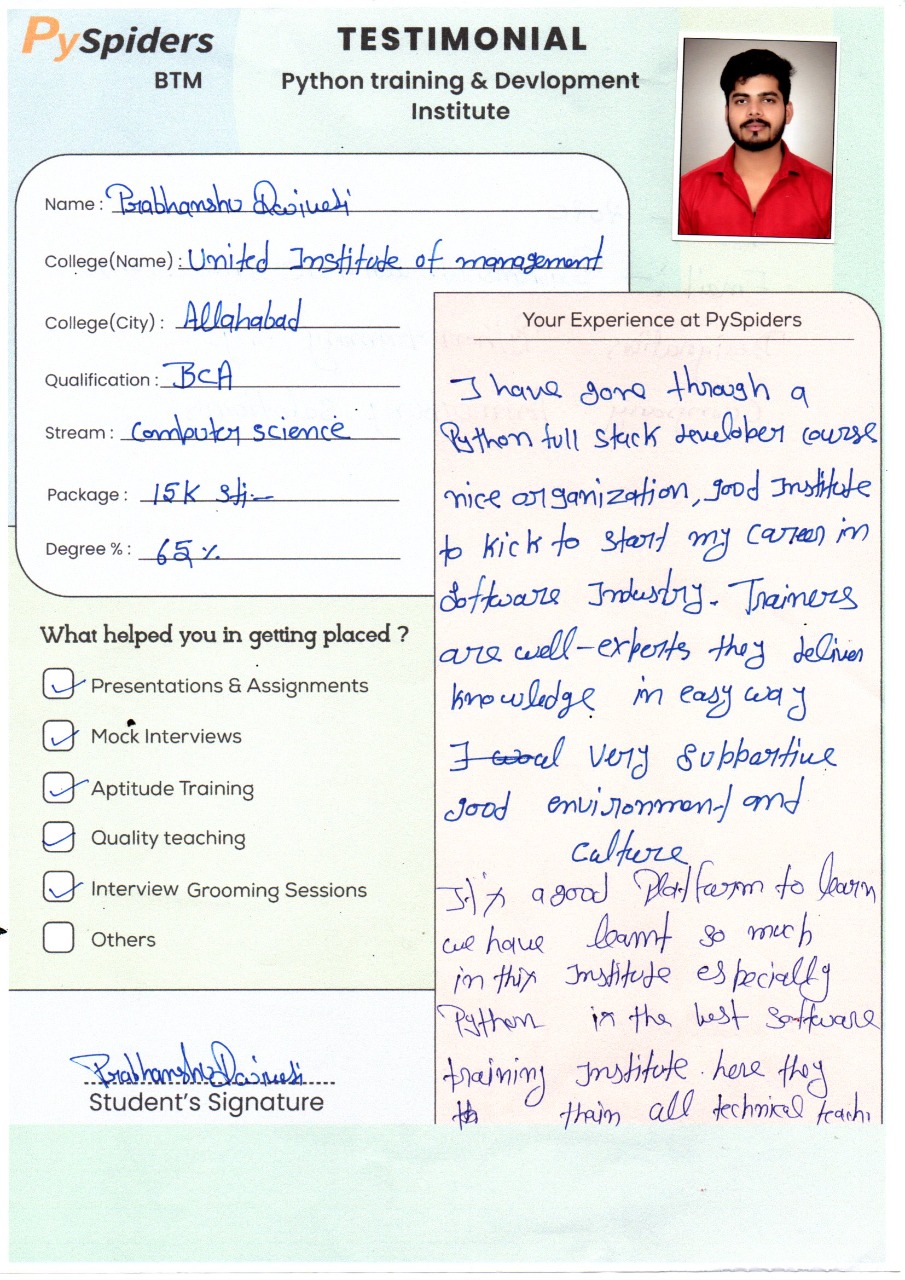 PySpiders
BTM
TESTIMONIAL
Python training & Devlopment
Institute
Name : Prabhanshu
College(Name) : United Institute of management
College(City) : Allahabad
Qualification : BCA
Stream : Computer science
Package : 15K
Degree % : 65 %
What helped you in getting placed ?
Presentations & Assignments
Mock Interviews
Aptitude Training
Quality teaching
Interview Grooming Sessions
Others
Prabhanshu
Student's Signature
Your Experience at PySpiders
I have gone through a
Python full stack developer course
nice organization, good Institute
to kick to start my career in
Software Industry. Trainers
are well-experts they deliver
knowledge in easy way
I very supportive
good environment and
culture
It's a good Platform to learn
we have learnt so much
in this Institute especially
Python is the best software
training Institute. here they
train all technical teachi